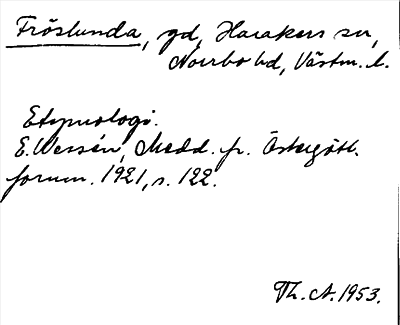 Fröslunda, gd, Harakers sn,
Norrbo hd, Västm. l.
Etymologi.
E. Wessén, Medd. fr. Östergötl.
fornm. 1921, s. 122.
Th. A. 1953.